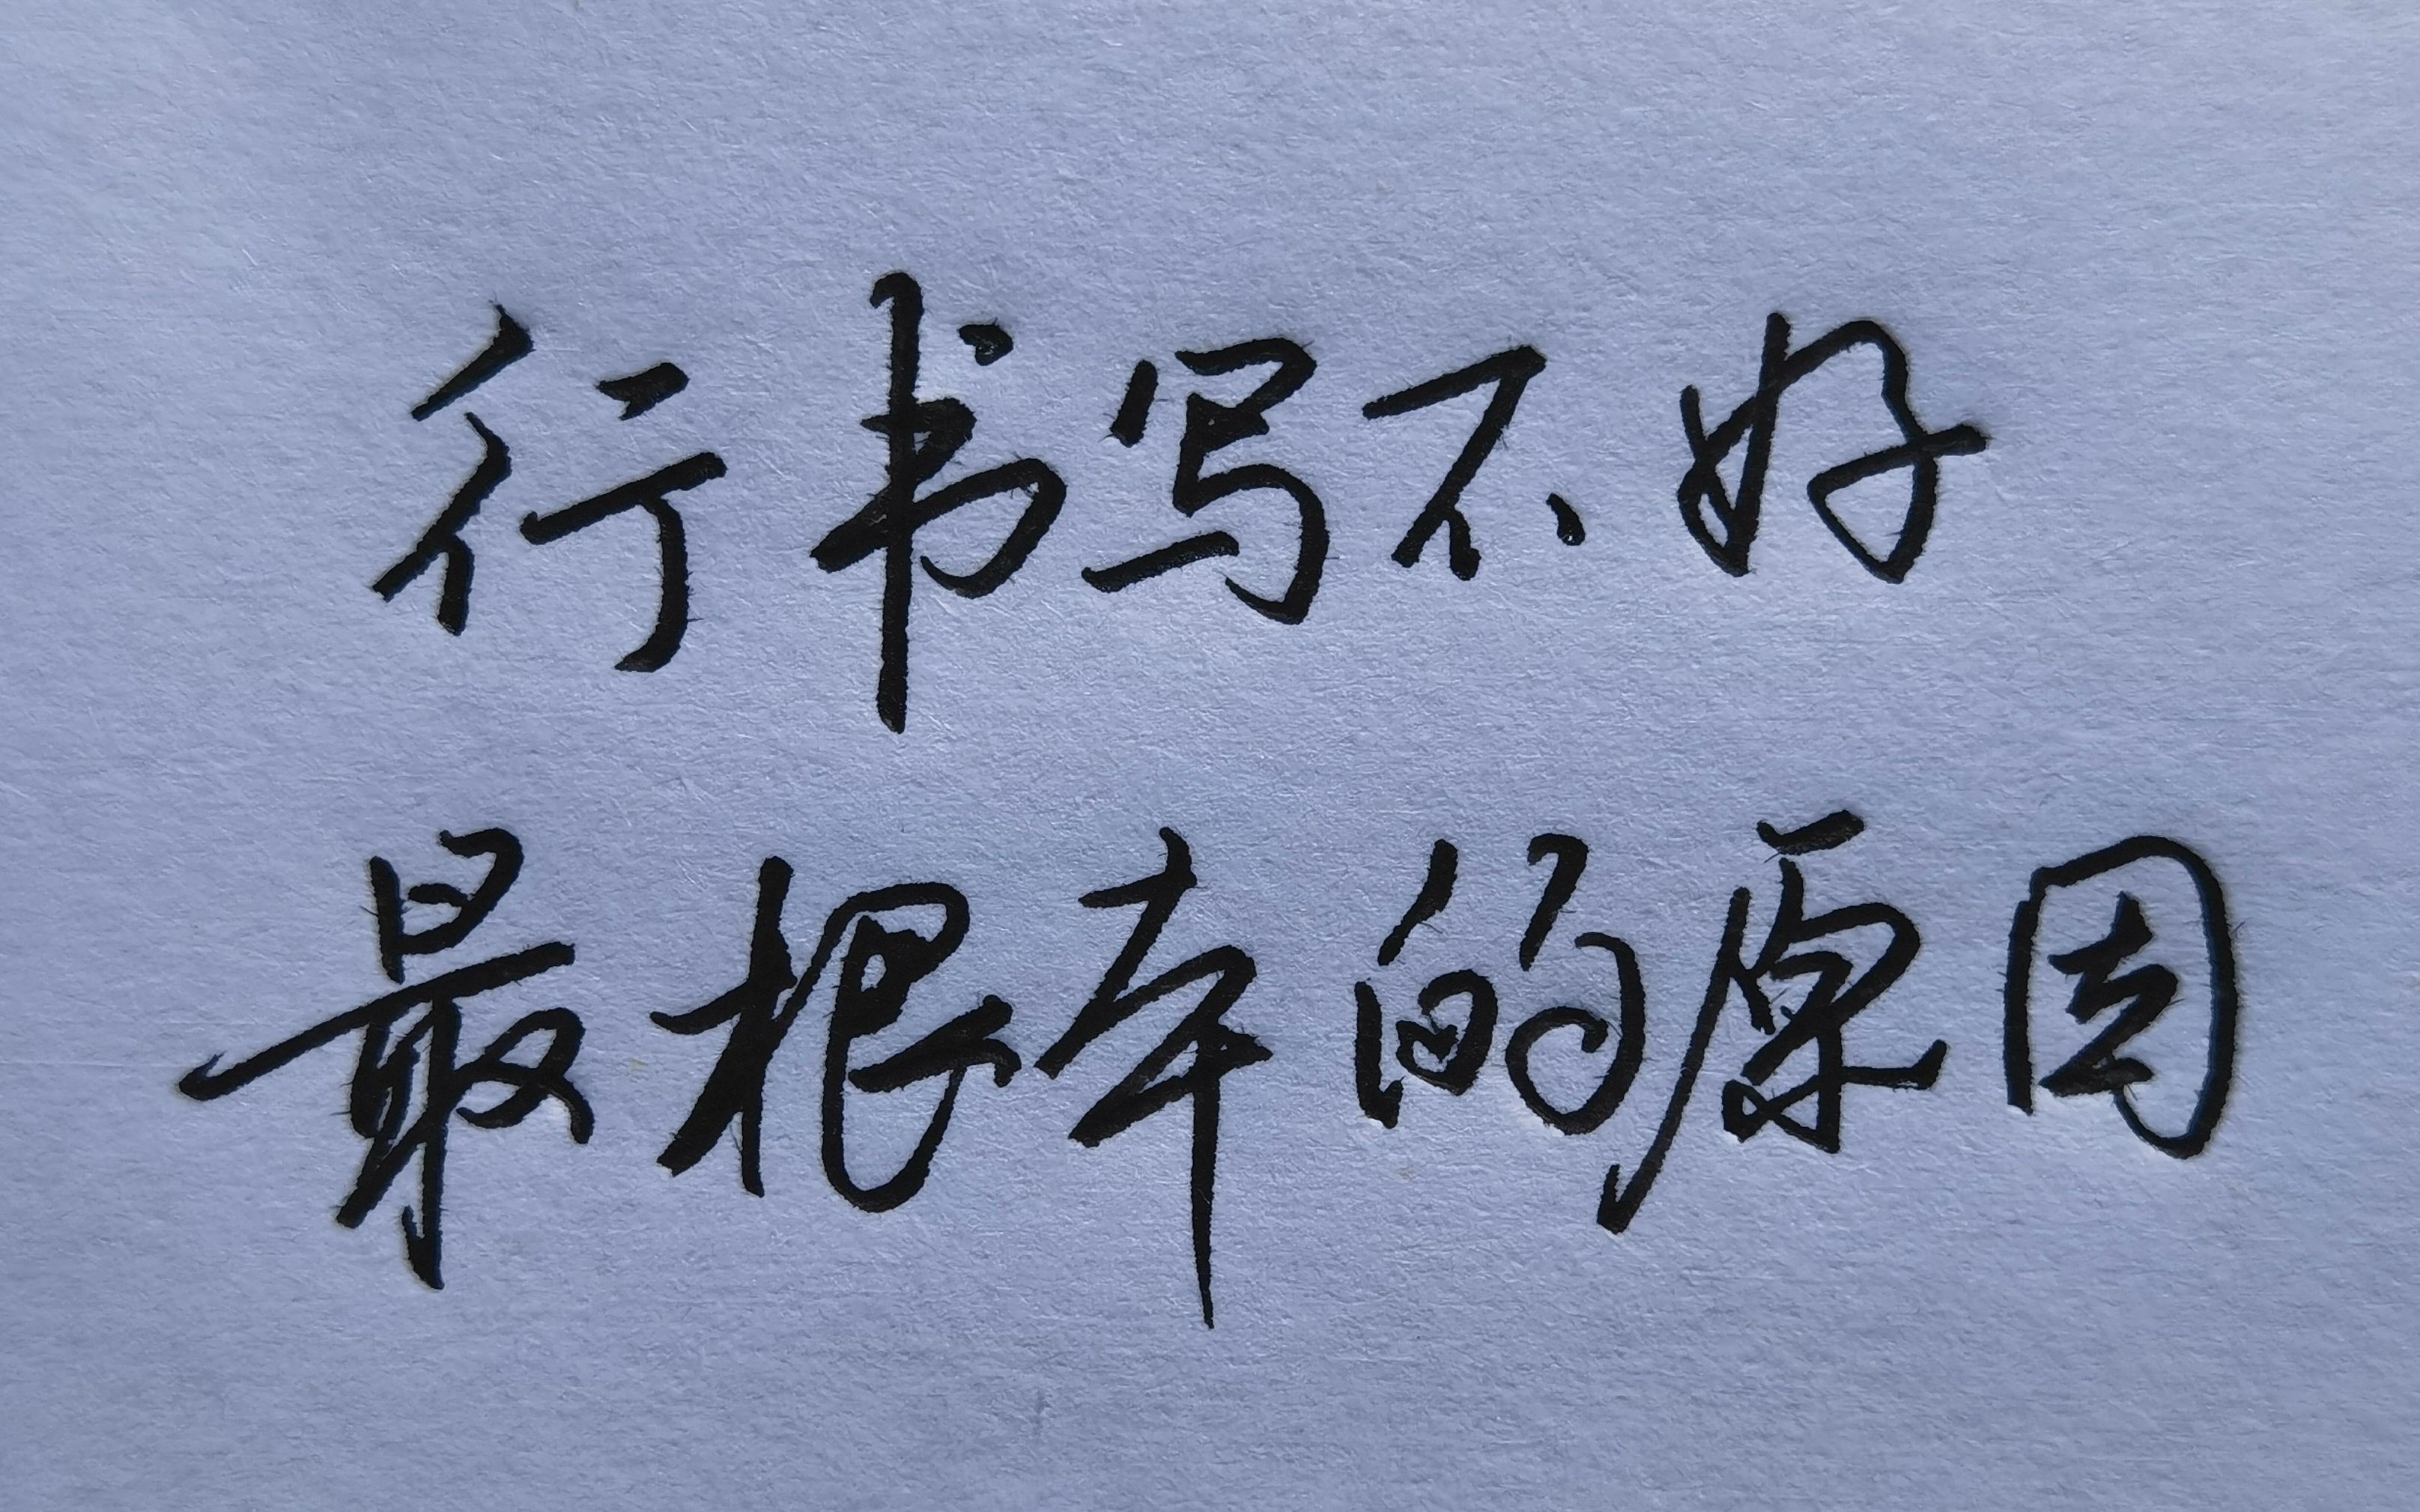 行书写不好
最根本的原因